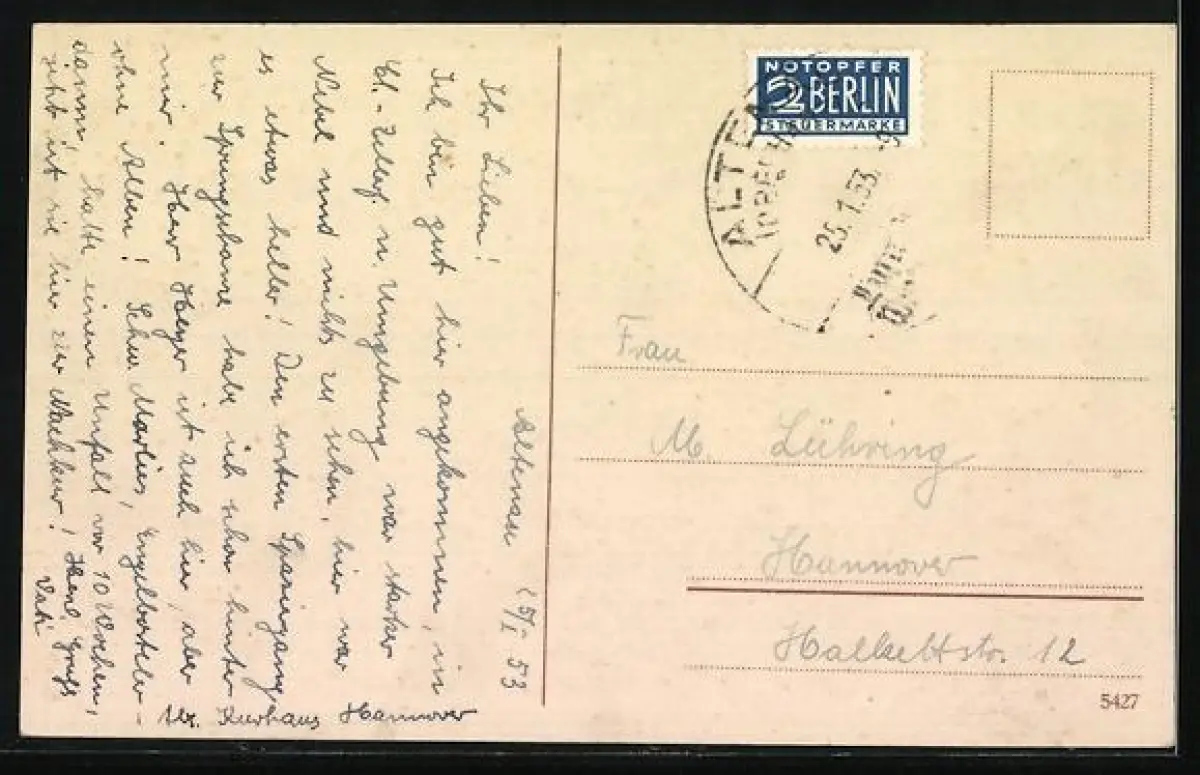 Altenau 25/I 53
Ihr Lieben!
Ich bin gut hier angekommen, in
Cl.-Zellerf. u. Umgebung war starker
Nebel und nichts zu sehen, hier war
es etwas heller! Den ersten Spaziergang
zur Sprungschanze habe ich schon hinter
mir. Herr Heyer ist auch hier, aber
ohne Alben! Schw. Marlies, Engelbosteler-
damm, hatte einen Unfall vor 10 Wochen,
jetzt ist sie hier zur Nachkur! Herzl. Grüße
Vati
Abs. Kurhaus Hannover
NOTOPFER
2 BERLIN
STEUERMARKE
ALTENAU
(OBERHARZ)
25.1.53.
Frau
M. Lühring
Hannover
Halkettstr. 12
5427